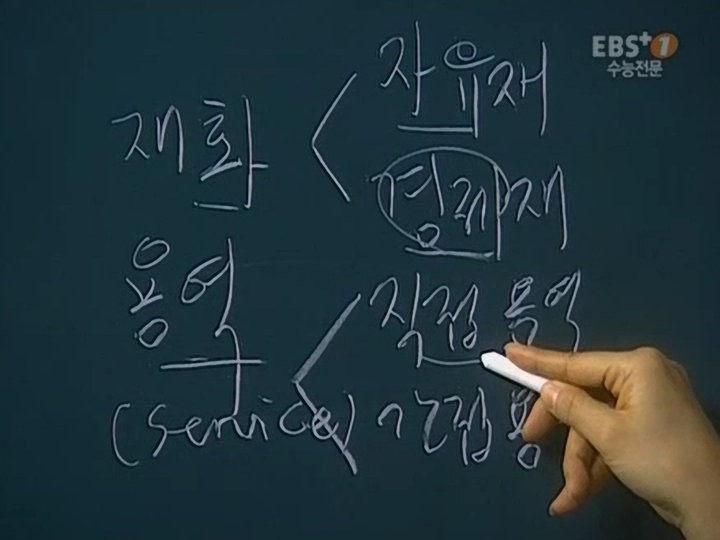 EBS+1
수능전문
자유재
재화
경제재
용역
직접 용역
(service) 간접용